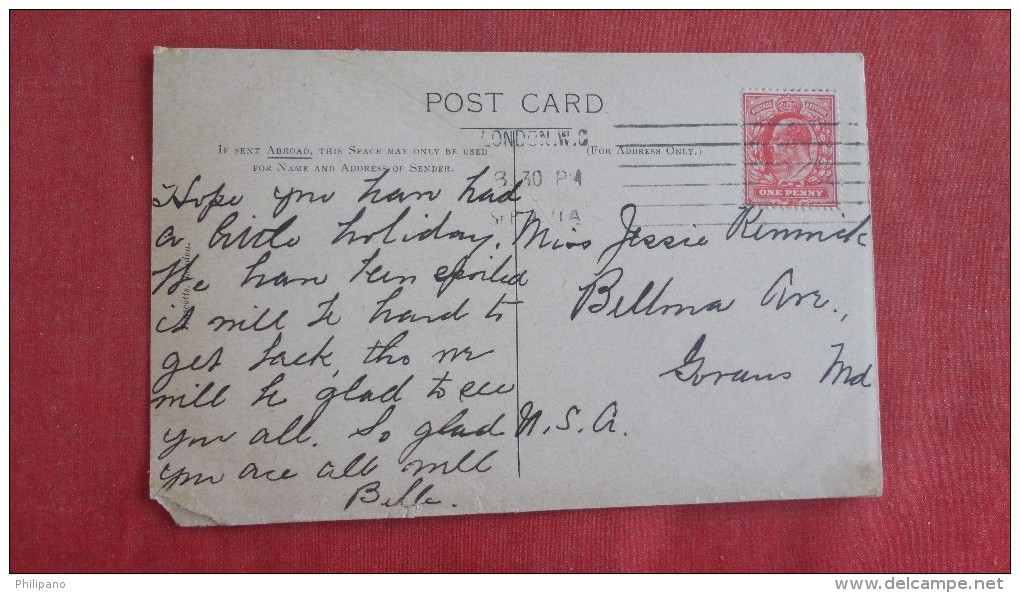 POST CARD.
IF SENT ABROAD, THIS SPACE MAY ONLY BE USED
FOR NAME AND ADDRESS OF SENDER.
(FOR ADDRESS ONLY.)
LONDON.W.C
8 30 PM
POSTAGE REVENUE
ONE PENNY
Hope you have had
a little holiday.
We have been spoiled
it will be hard to
get back, tho we
will be glad to see
you all. So glad
you are all well
Belle.
Miss Jessie
Bellona Ave.,
Govans Md
U.S.A.
Philipano
www.delcampe.net